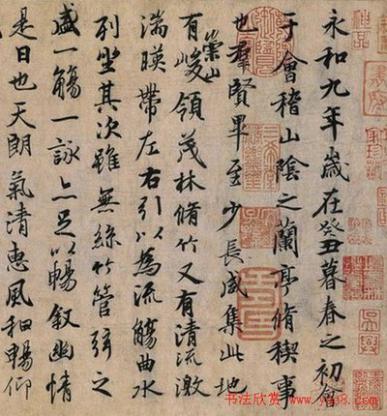 永和九年歲在癸丑暮春之初會
于會稽山陰之蘭亭脩稧事
也羣賢畢至少長咸集此地
有崇山峻領茂林脩竹又有清流激
湍暎帶左右引以為流觴曲水
列坐其次雖無絲竹管弦之
盛一觴一詠亦足以暢敘幽情
是日也天朗氣清惠風和暢仰
书法欣赏